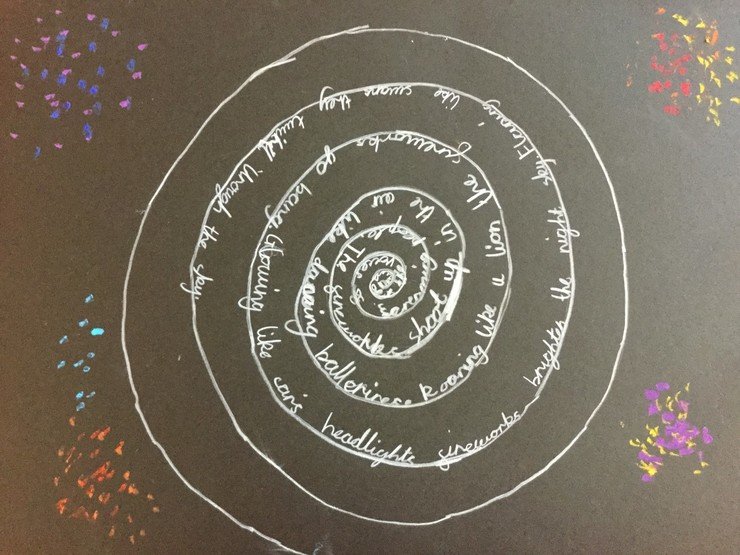 people The fireworks shoot up in the air like dancing ballerinese Roaring like a lion the fireworks go bang Glowing like cars headlights fireworks brighten the night sky like swans they twirll through the sky.